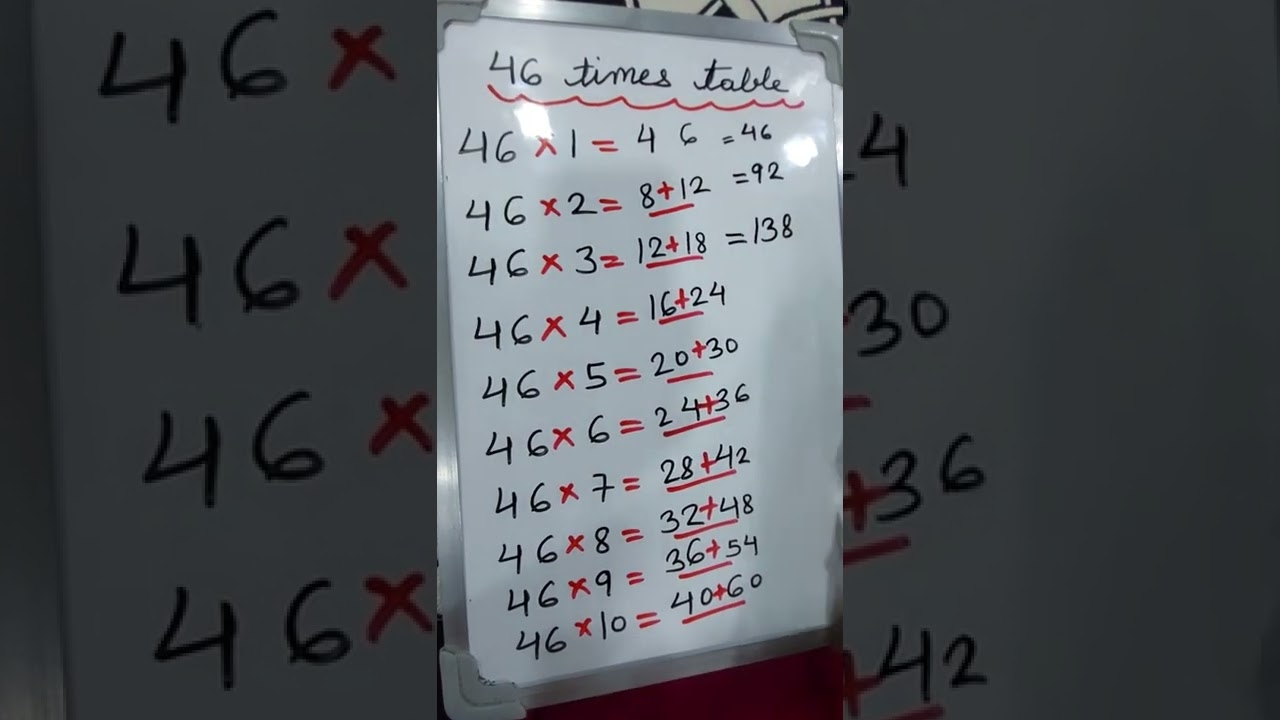 46 times table
46 × 1 = 4 6 = 46
46 × 2 = 8+12 = 92
46 × 3 = 12+18 = 138
46 × 4 = 16+24
46 × 5 = 20+30
46 × 6 = 24+36
46 × 7 = 28+42
46 × 8 = 32+48
46 × 9 = 36+54
46 × 10 = 40+60